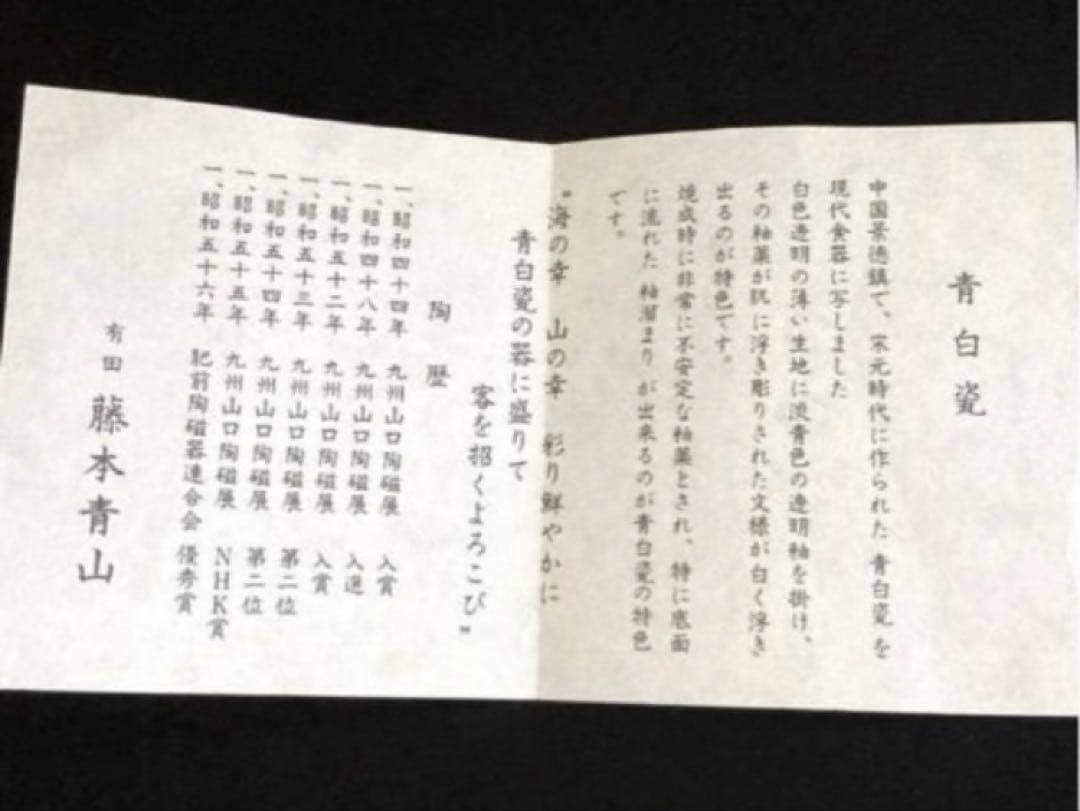 青白瓷
中国景徳鎮で、宋元時代に作られた 青白瓷 を
現代食器に写しました
白色透明の薄い生地に淡青色の透明釉を掛け、
その釉薬が肌に浮き彫りされた文様が白く浮き
出るのが特色です。
焼成時に非常に不安定な釉薬とされ、特に底面
に流れた 釉溜まり が出来るのが青白瓷の特色
です。
"海の幸 山の幸 彩り鮮やかに
青白瓷の器に盛りて
客を招くよろこび"
陶歴
一、昭和四十四年 九州山口陶磁展 入賞
一、昭和四十八年 九州山口陶磁展 入選
一、昭和五十二年 九州山口陶磁展 入賞
一、昭和五十三年 九州山口陶磁展 第二位
一、昭和五十四年 九州山口陶磁展 第二位
一、昭和五十五年 九州山口陶磁展 NHK賞
一、昭和五十六年 肥前陶磁器連合会 優秀賞
有田 藤本青山